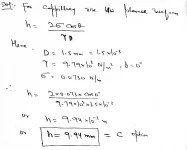 Sol. For capillary rise the planar surface
h = 2σ cosθ / γD
Here,
D = 1.5 mm = 1.5x10⁻³
γ = 9.79x10³ N/m³, θ = 0°
σ = 0.0730 N/m
∴ h = 2x0.073x cos0° / 9.79x10³x1.5x10⁻³
or h = 9.94x10⁻³ m
or h = 9.94 mm = C option